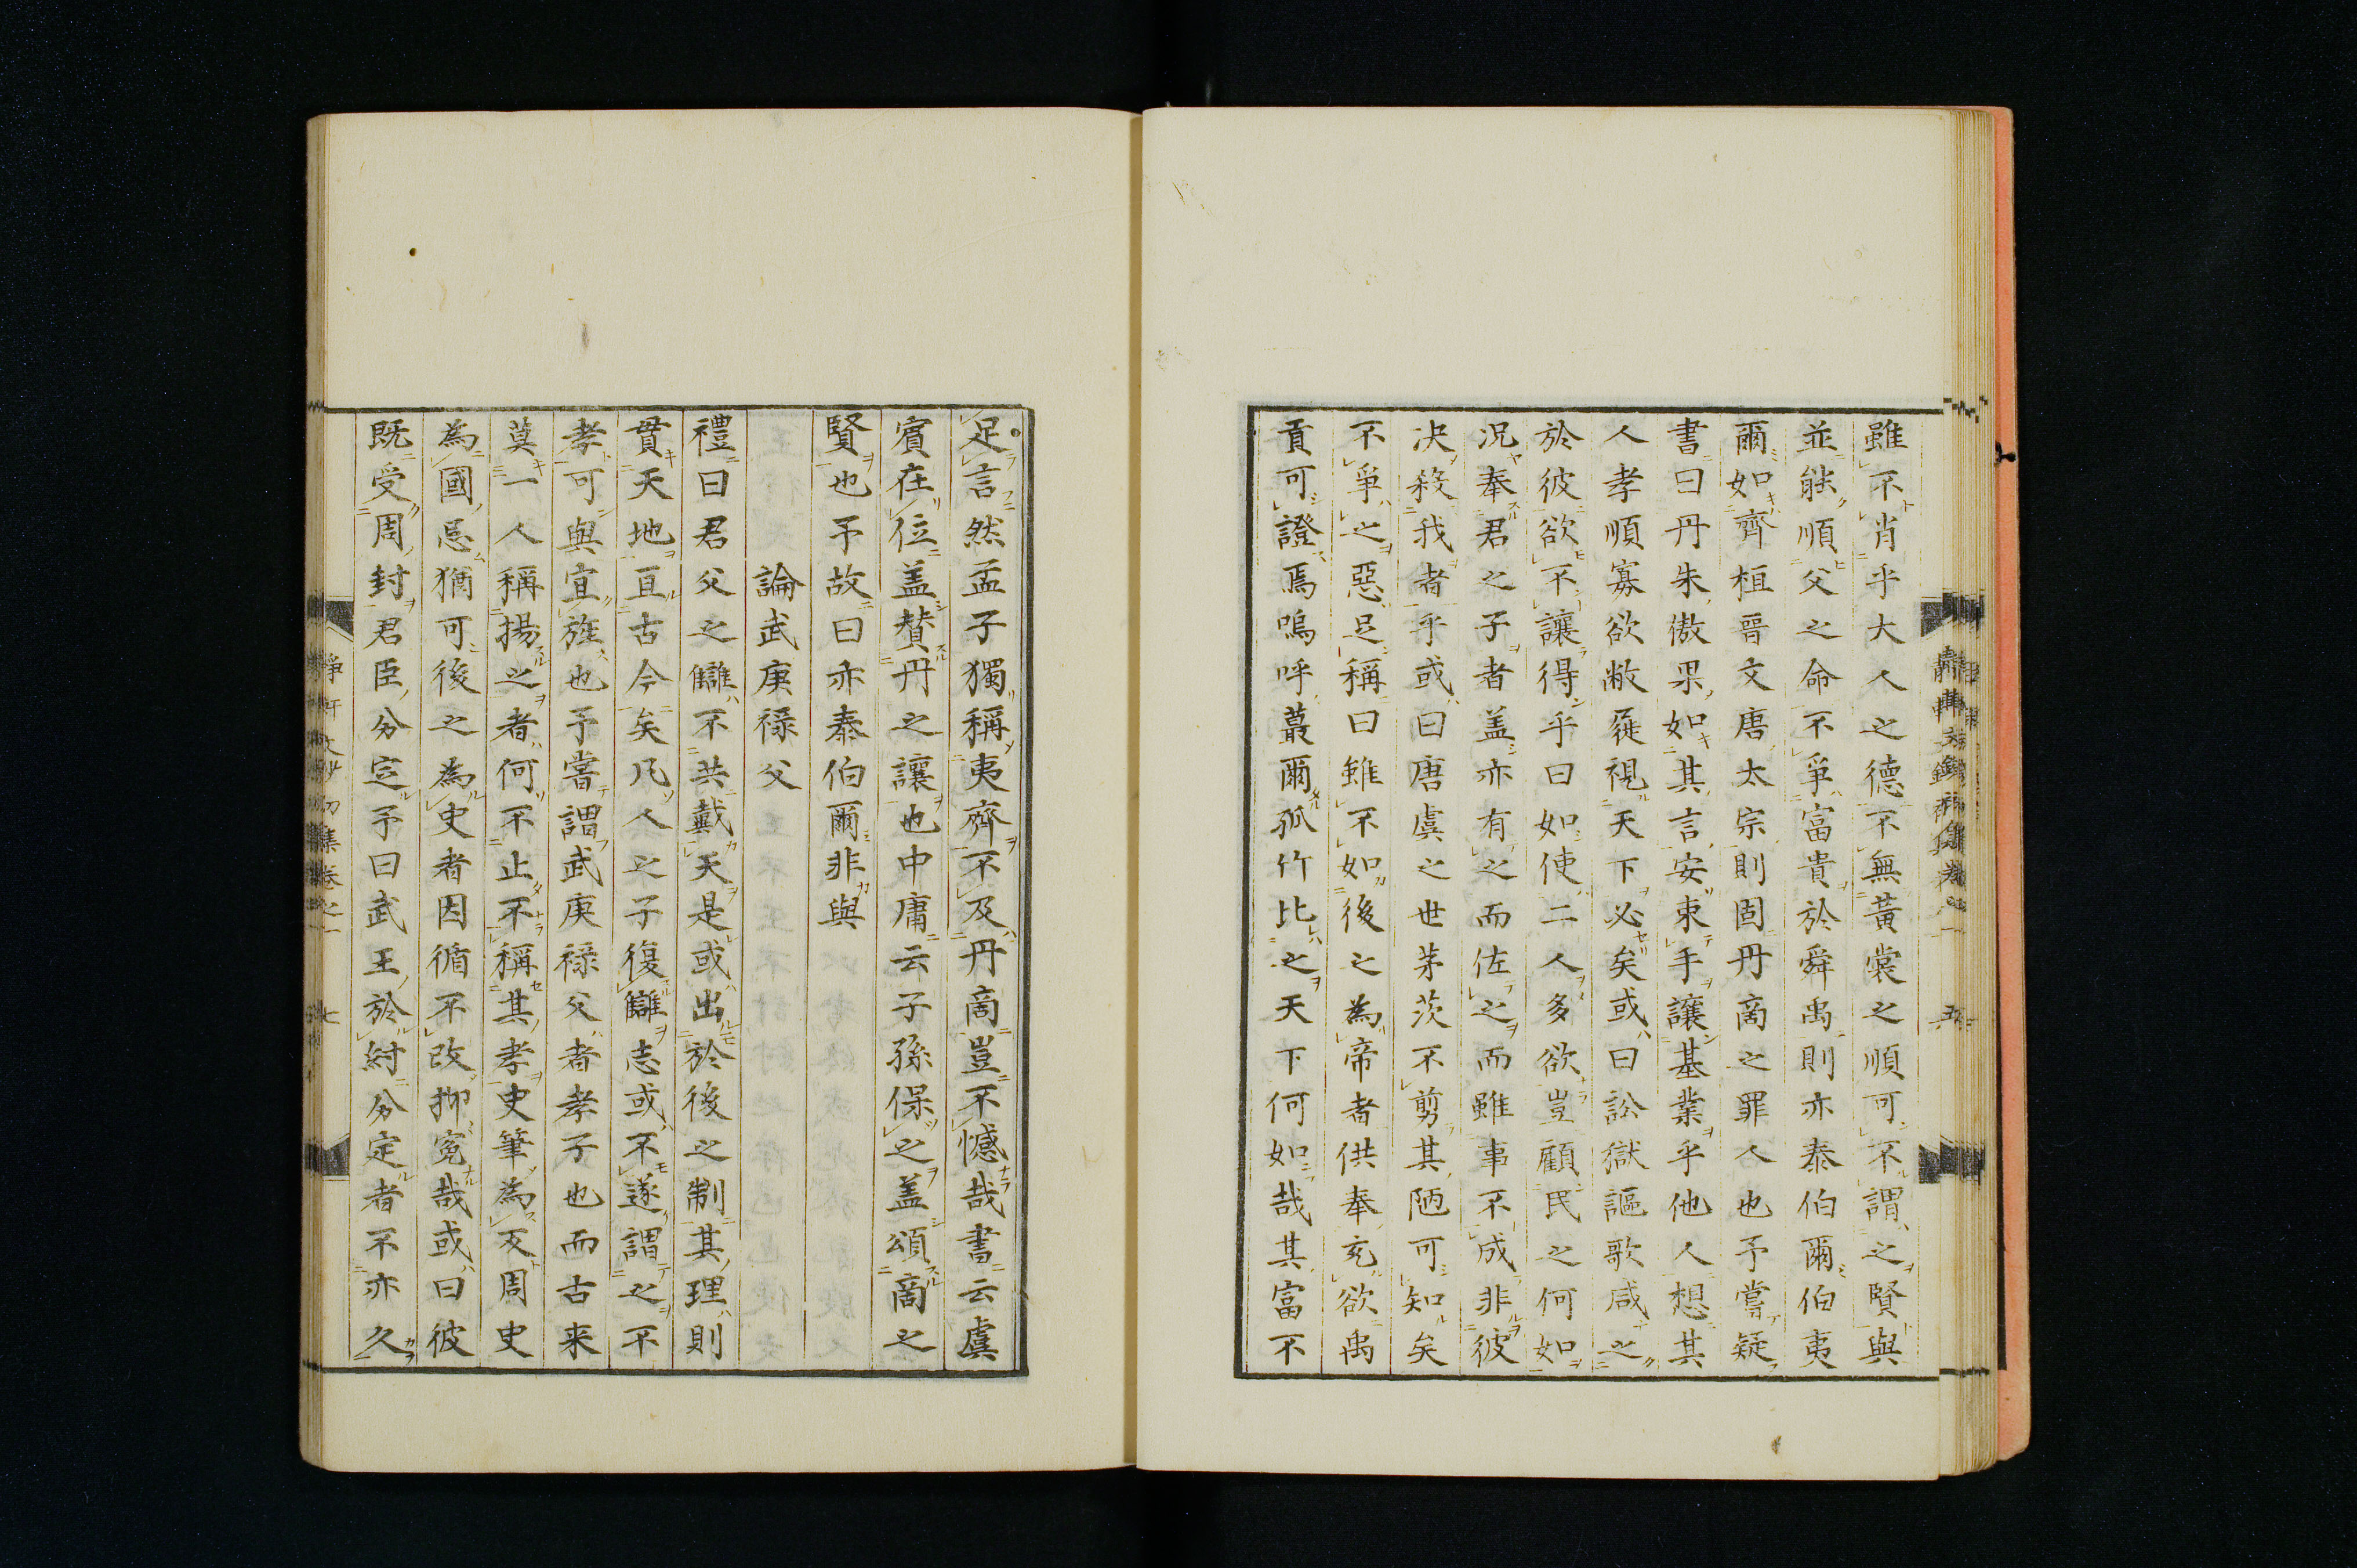 雖不肖乎大人之德不無黃裳之順可不謂之賢與
並能順父之命不爭富貴於舜禹則亦泰伯爾伯夷
爾如齊桓晉文唐太宗則固丹商之罪人也予嘗疑
書曰丹朱傲果如其言安束手讓基業乎他人想其
人孝順寡欲敝蓰視天下必矣或曰訟獄謳歌咸之
於彼欲不讓得乎曰如使二人多欲豈顧民之何如
況奉君之子者盖亦有之而佐之而雖事不成非彼
决殺我者乎或曰唐虞之世茅茨不剪其陋可知矣
不爭之惡足稱曰雖不如後之為帝者供奉充欲禹
貢可證焉嗚呼蕞爾孤竹比之天下何如哉其富不
足言然孟子獨稱夷齊不及丹商豈不憾哉書云虞
賓在位盖賛丹之讓也中庸云子孫保之盖頌商之
賢也予故曰亦泰伯爾非與
論武庚祿父
禮曰君父之讎不共戴天是或出於後之制其理則
貫天地亘古今矣凡人之子復讎志或不遂謂之不
孝可與宜旌也予嘗謂武庚祿父者孝子也而古来
莫一人稱揚之者何不止不稱其孝史筆為反周史
為國忌猶可後之為史者因循不改抑寃哉或曰彼
既受周封君臣分定予曰武王於紂分定者不亦久
卷之一
七